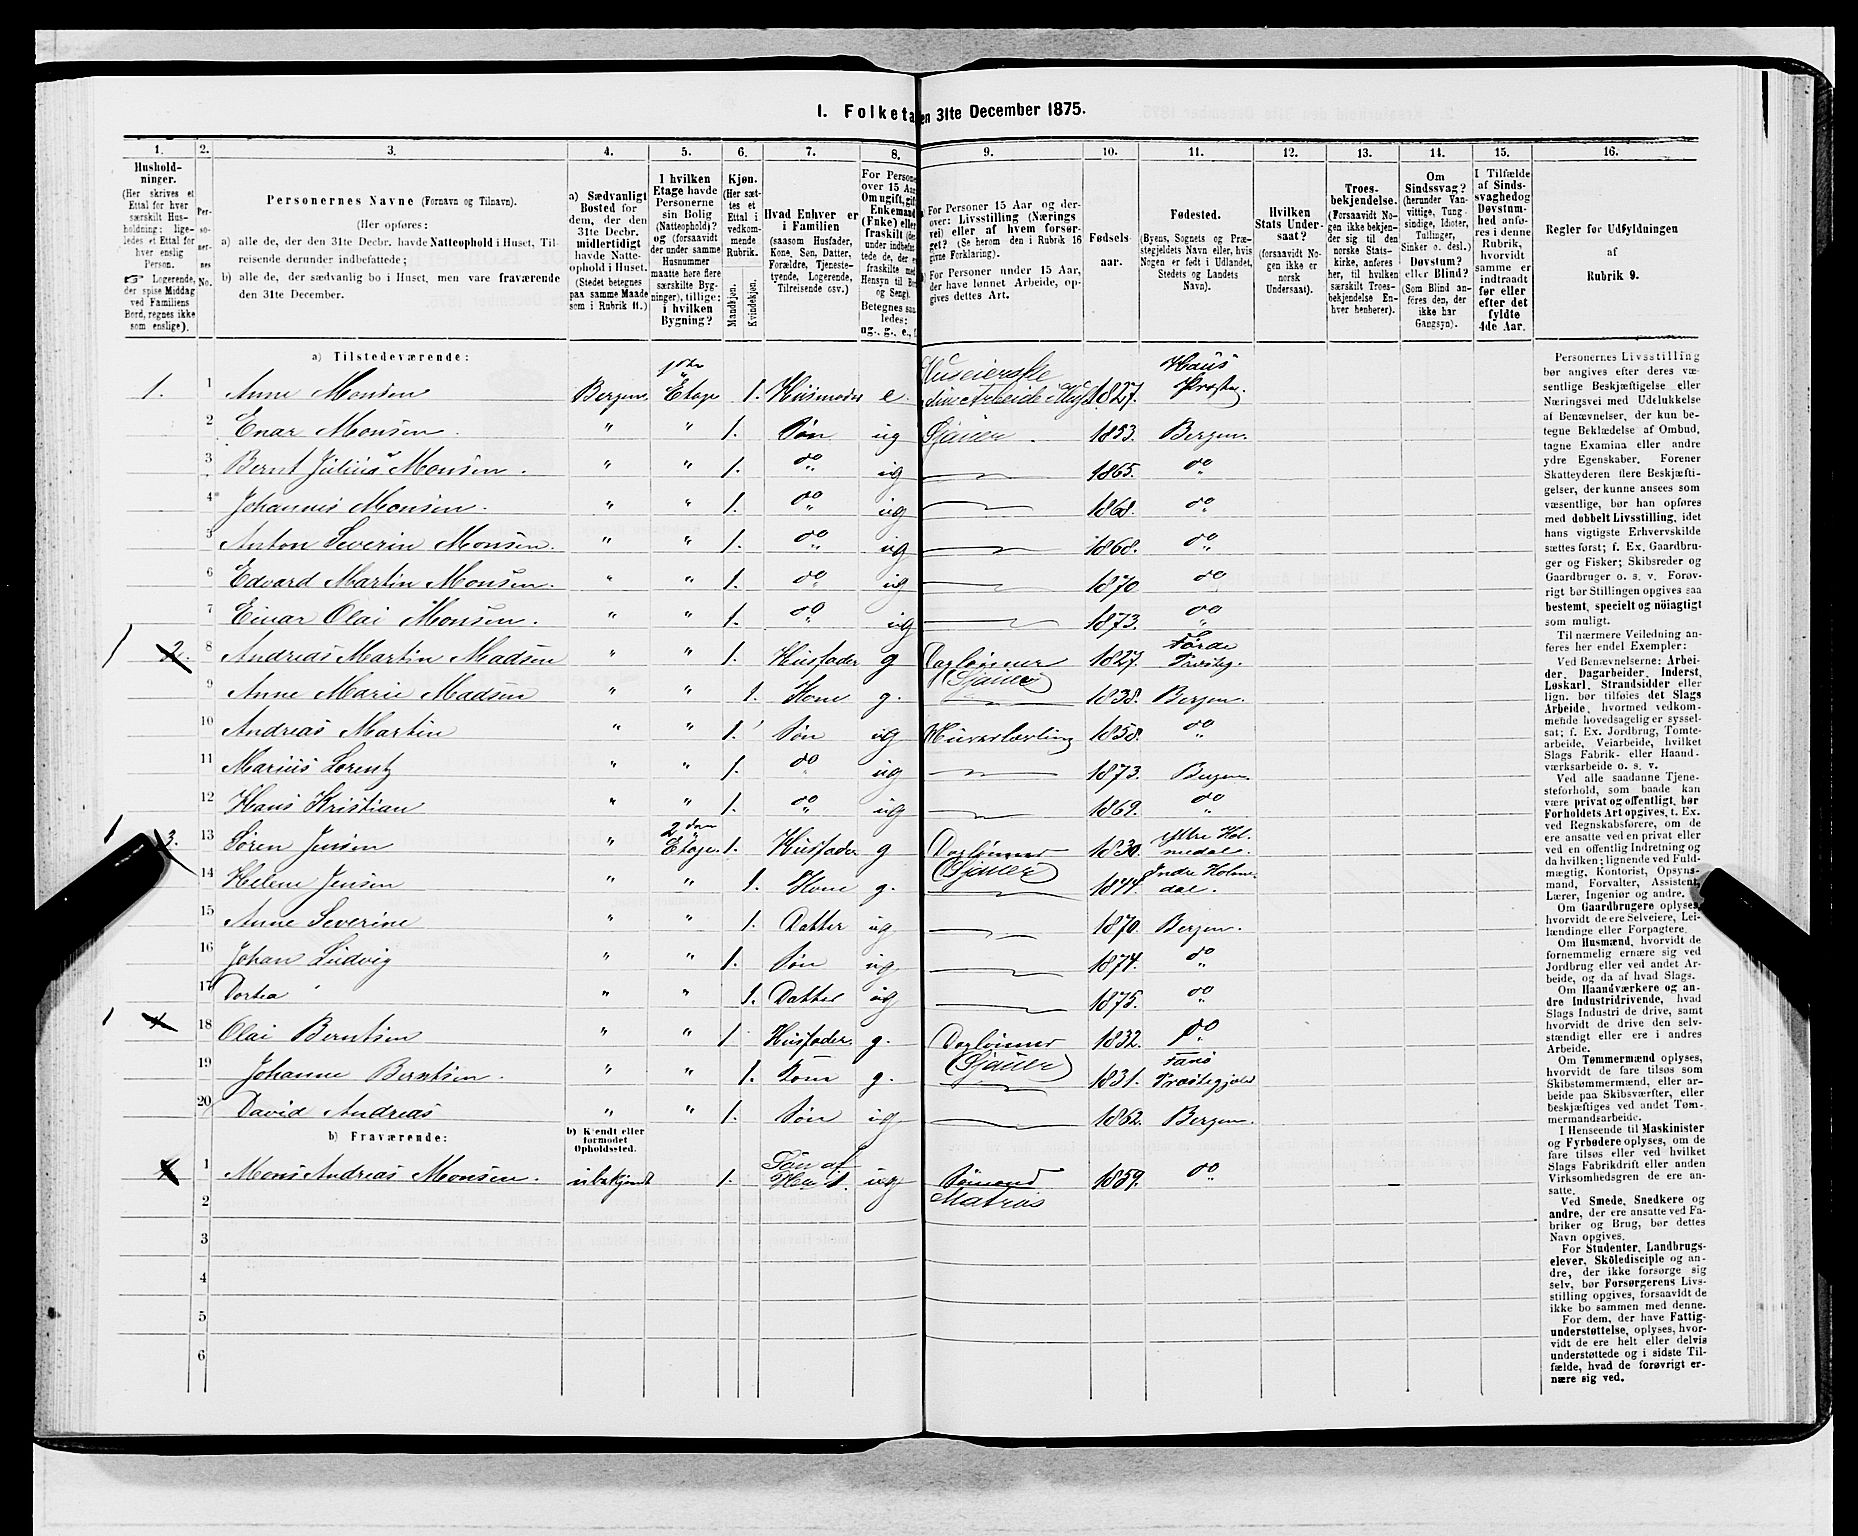 1. Folketa en 31te December 1875.
1. 2. 3. 4. 5. 6. 7. 8. 9. 10. 11. 12. 13. 14. 15. 16.
Hushold-
ninger.
(Her skrives et
Ettal for hver
særskilt Hus-
holdning; lige-
ledes et Ettal for
hver enslig
Person.
☞ Logerende,
der spise Middag
ved Familiens
Bord, regnes ikke
som enslige).
Per-
so-
ner-
nes
No.
Personernes Navne (Fornavn og Tilnavn).
(Her opføres:
a) alle de, der den 31te Decbr. havde Natteophold i Huset, Til-
reisende derunder indbefattede;
b) alle de, der sædvanlig bo i Huset, men vare fraværende
den 31te December.
a) Sædvanligt
Bosted for
dem, der den
31te Decbr.
midlertidigt
havde Natte-
ophold i Huset.
(Stedet betegnes
paa samme Maade
som i Rubrik 11.)
I hvilken
Etage havde
Personerne
sin Bolig
(Natteophold)?
og (forsaavidt
der under samme
Husnummer
maatte høre flere
særskilte Byg-
ninger), tillige:
i hvilken
Bygning?
Kjøn.
(Her sæt-
tes et
Ettal i
vedkom-
mende
Rubrik.
Mandkjøn.
Kvindekjøn.
Hvad Enhver er
i Familien
(saasom Husfader,
Kone, Søn, Datter,
Forældre, Tjeneste-
tyende, Logerende,
Tilreisende osv.)
For Persone
over 15 Aar
Om ugift, gift
Enkemand
(Fnke) eller
fraskilt (der-
under indbefat-
tede de, der e
fraskilte med
Hensyn til Bo
og Seng).
Betegnes saa
ledes:
ug., g., e.,
For Personer 15 Aar og der-
over: Livsstilling (Nærings
vei) eller af hvem forsør-
get? (Se herom den i Rubrik 16
givne Forklaring).
For Personer under 15 Aar,
der have lønnet Arbeide, op-
gives dettes Art.
Fødsels-
aar.
Fødested.
(Byens, Sognets og Præ-
stegjeldets Navn eller, hvis
Nogen er født i Udlandet,
Stedets og Landets
Navn).
Hvilken
Stats Under-
saat?
(forsaavidt No-
gen ikke er
norsk
Undersaat).
Troes-
bekjendelse.
(Forsaavidt No-
gen ikke bekjen-
der sig til den
norske Stats-
kirke, anføres
her, til hvilken
særskilt Troes-
bekjendelse En-
hver henhører).
Om
Sindssvag?
(herunder Van-
vittige, Tung-
sindige, Idioter,
Tullinger,
Sinker o. desl.)
Døvstum?
eller Blind?
(Som Blind an-
føres den, der
ikke har
Gangsyn).
I Tilfælde
af Sinds-
svaghed og
Døvstum-
hed anfø-
res i denne
Rubrik,
hvorvidt
samme er
indtraadt
før eller
efter det
fyldte
4de Aar.
Regler før Udfyldningen
af
Rubrik 9.
a) Tilstedeværende:
1. 1 Anne Monsen Bergen 1ste Etage 1. Husmoder e. Huseierske 1827. Haus Præsteg.
2 Enar Monsen. " " 1. Søn ug Sjauer. 1853. Bergen.
3 Bernt Julius Monsen. " " 1. do ug 1865. do
4 Johannes Monsen. " " 1. do ug 1868. do
5 Anton Severin Monsen. " " 1. do ug 1868. do
6 Edvard Martin Monsen. " " 1. do ug 1870 do
7 Einar Olai Monsen. " " 1. do ug 1873. do
1 2. 8 Andreas Martin Madsen " " 1. Husfader g Daglønner (Sjauer) 1827. Førde Præsteg.
9 Anne Marie Madsen " " 1. Kone g. 1838. Bergen.
10 Andreas Martin " " 1. Søn ug 1858. do
11 Marius Lorentz " " 1. do ug 1873. Bergen
12 Hans Kristian " " 1. do ug 1869. do
1 3. 13 Søren Jensen " 2den Etage 1. Husfader g Daglønner (Sjauer) 1830. Yttre Holmedal.
14 Helene Jensen " " 1. Kone g. 1844. Indre Holmedal.
15 Anne Severine " " 1. Datter ug 1870. Bergen.
16 Johan Ludvig " " 1. Søn ug 1874. do
17 Dortea " " 1. Datter ug 1875. do
1 4 18 Olai Berntsen " " 1 Husfader. g. Daglønner (Sjauer) 1832. do
19 Johanne Berntsen. " " 1. Kone g. 1831. Fanø Præstegjeld
20 David Andreas " " 1. Søn ug 1862. Bergen.
b) Fraværende:
b) Kjendt eller
formodet
Opholdssted.
1 Mons Andreas Monsen. ubekjendt 1. Søn af No 1. ug Sømand Matros 1859. do
2
3
4
5
6
Personernes Livsstilling
bør angives efter deres væ-
sentlige Beskjæftigelse eller
Næringsvei med Udelukkelse
af Benævnelser, der kun be-
tegne Beklædelse af Ombud,
tagne Examina eller andre
ydre Egenskaber. Forener
Skatteyderen flere Beskjæfti-
gelser, der kunne ansees som
væsentlige, bør han opføres
med dobbelt Livsstilling, idet
hans vigtigste Erhvervskilde
sættes først; f. Ex. Gaardbru-
ger og Fisker; Skibsreder og
Gaardbruger o. s. v. Forøv-
rigt bør Stillingen opgives saa
bestemt, specielt og nöiagtigt
som muligt.
Til nærmere Veiledning an-
føres her endel Exempler:
Ved Benævnelserne: Arbei-
der, Dagarbeider, Inderst,
Løskarl, Strandsidder eller
lign. bør tilføies det Slags
Arbeide, hvormed vedkom-
mende hovedsagelig er syssel-
sat; f. Ex. Jordbrug, Tomte-
arbeide, Veiarbeide, hvilket
Slags Fabrik- eller Haand-
værksarbeide o. s. v.
Ved alle saadanne Tjene-
steforhold, som baade kan
være privat og offentligt, bør
Forholdets Art opgives, t. Ex.
ved Regnskabsførere, om de
ere ansatte ved en privat eller
ved en offentlig Indretning og
da hvilken; lignende ved Fuld-
mægtig, Kontorist, Opsyns-
mand, Forvalter, Assistent,
Lærer, Ingeniør og andre.
Om Gaardbrugere oplyses,
hvorvidt de ere Selveiere, Lei-
lændinge eller Forpagtere.
Om Husmænd, hvorvidt de
fornemmelig ernære sig ved
Jordbrug eller ved andet Ar-
beide, og da af hvad Slags.
Om Haandværkere og an-
dre Industridrivende, hvad
Slags Industri de drive, samt
hvorvidt de drive den selv-
stændigt eller ere i andres
Arbeide.
Om Tømmermænd oplyses,
hvorvidt de fare tilsøs som
Skibstømmermænd, eller ar-
beide paa Skibsværfter, eller
beskjæftiges ved andet Tøm-
mermandsarbeide.
I Henseende til Maskinister
og Fyrbødere oplyses, om de
fare tilsøs eller ved hvilket
Slags Fabrikdrift eller anden
Virksomhedsgren de ere an-
satte.
Ved Smede, Snedkere og
andre, der ere ansatte ved Fa-
briker og Brug, bør dettes
Navn opgives.
For Studenter, Landbrugs-
elever, Skoledisciple og an-
dre, der ikke forsørge sig
selv, bør Forsørgerens Livs-
stilling opgives, forsaavidt de
ikke bo sammen med denne.
For dem, der have Fattig-
understøttelse, oplyses, hvor-
vidt de ere helt eller delvis
understøttede og i sidste Til-
fælde, hvad de forøvrigt er-
nære sig ved.